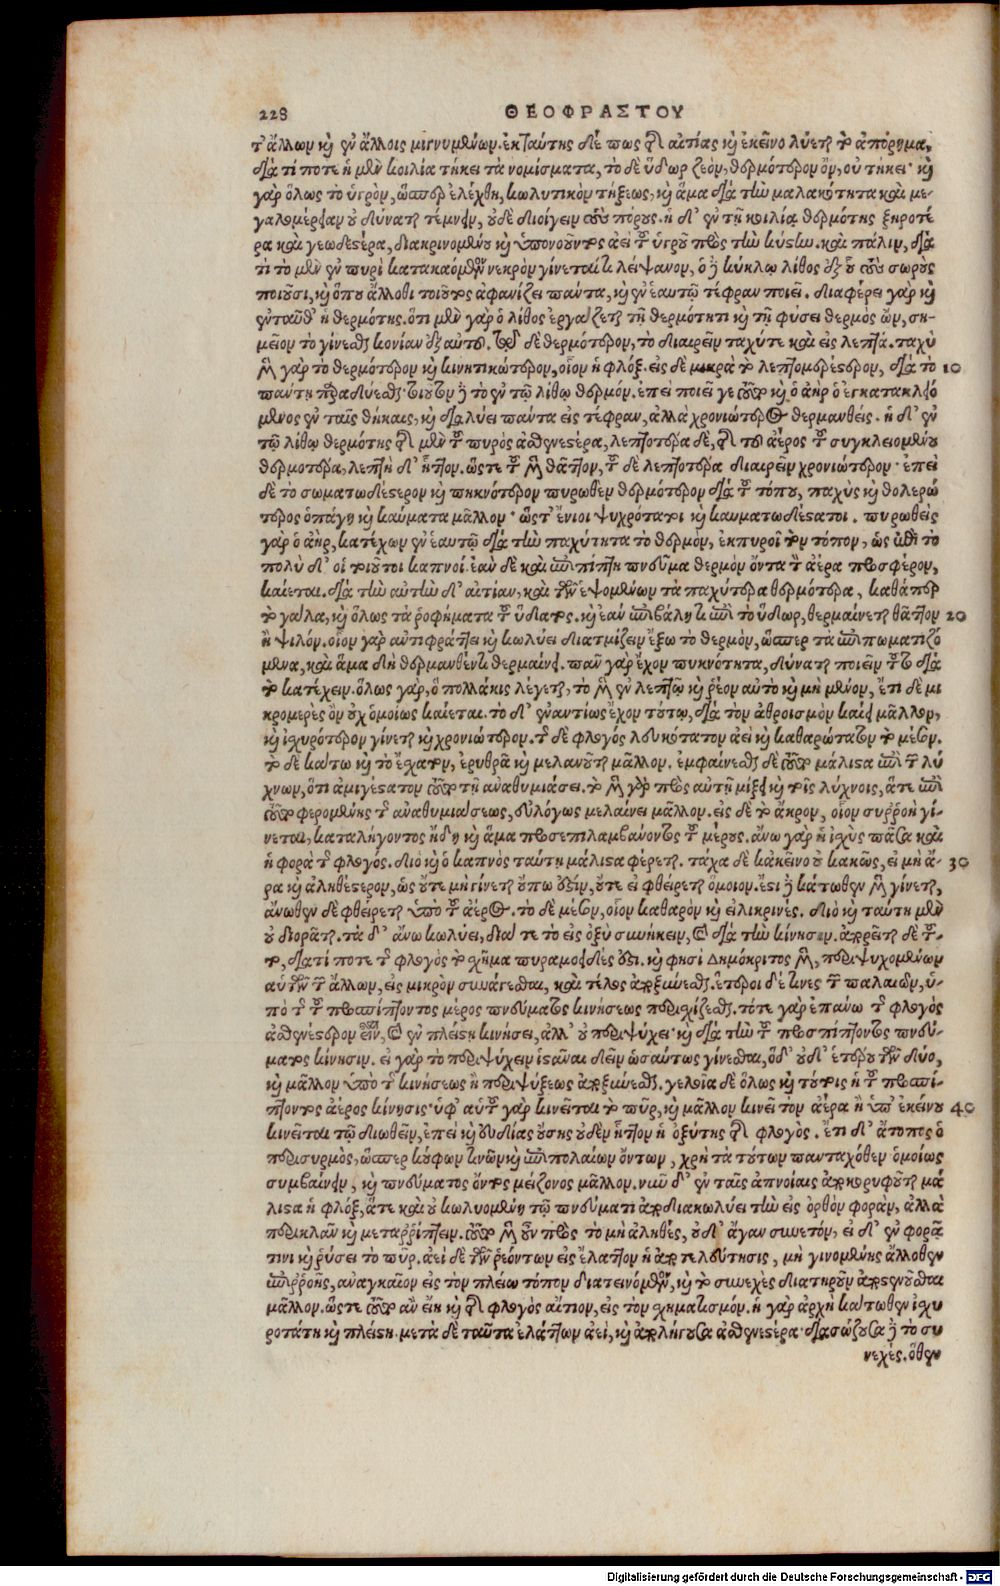 228 ΘΕΟΦΡΑΣΤΟΥ
τ ἄλλων κὴ ἐν ἄλλοις μιγνυμένων. ἐκ ταύτης δέ πως τῆς αἰτίας κὴ ἐκεῖνο λύεται τὸ ἀπόρημα,
διὰ τί ποτε ἡ μὲν κοιλία τήκει τὰ νομίσματα, τὸ δὲ ὕδωρ ζεὸν, θερμότερον ὂν, οὐ τήκει· κὴ
γὰρ ὅλως τὸ ὑγρὸν, ὥσπερ ἐλέχθη, κωλυτικὸν τήξεως, κὴ ἅμα διὰ τὴν μαλακότητα καὶ με-
γαλομέρειαν οὐ δύναται τέμνειν, οὐδὲ διοίγειν τοὺς πόρους. ἡ δ' ἐν τῇ κοιλίᾳ θερμότης ξηροτέ
ρα καὶ γεωδεστέρα, διακρινομένου κὴ ὑπονοοῦντος ἀεὶ τοῦ ὑγροῦ πρὸς τὴν κύστιν. καὶ πάλιν, διὰ
τί τὸ μὲν ἐν πυρὶ κατακαόμενον νεκρὸν γίνεταί τι λείψανον, ὁ δὲ κύκλῳ λίθος ἐξ οὗ τοὺς σωροὺς
ποιοῦσι, κὴ ὅπου ἄλλοθι τοιοῦτος ἀφανίζει πάντα, κὴ ἐν ἑαυτῷ τέφραν ποιεῖ. διαφέρει γὰρ κὴ
ἐνταῦθ' ἡ θερμότης. ὅτι μὲν γὰρ ὁ λίθος ἐργάζεται τῇ θερμότητι κὴ τῇ φύσει θερμὸς ὢν, ση-
μεῖον τὸ γίνεσθαι κονίαν ἐξ αὐτοῦ. τοῦ δὲ θερμότερον, τὸ διαιρεῖν ταχύτε καὶ εἰς λεπτά. ταχὺ
μὲν γὰρ τὸ θερμότερον κὴ κινητικώτερον, οἷον ἡ φλόξ. εἰς δὲ μικρὰ τὸ λεπτομερέστερον, διὰ τὸ 10
πάντῃ παραδύεσθαι. τοιοῦτον δὲ τὸ ἐν τῷ λίθῳ θερμόν. ἐπεὶ ποιεῖ γε τοῦτο κὴ ὁ ἀὴρ ὁ ἐγκατακλειό
μενος ἐν ταῖς θήκαις, κὴ διαλύει πάντα εἰς τέφραν, ἀλλὰ χρονιώτερος θερμανθείς. ἡ δ' ἐν
τῷ λίθῳ θερμότης τῆς μὲν τοῦ πυρὸς ἀσθενεστέρα, λεπτοτέρα δὲ, τῆς τοῦ ἀέρος τοῦ συγκλειομένου
θερμοτέρα, λεπτὴ δ' ἧττον. ὥστε τοῦ μὲν θᾶττον, τοῦ δὲ λεπτοτέρα διαιρεῖν χρονιώτερον· ἐπεὶ
δὲ τὸ σωματωδέστερον κὴ πηκνότερον πυρωθὲν θερμότερον διὰ τοῦ τόπου, παχὺς κὴ θολερώ
τερος ὁ πάγῃ κὴ καύματα μᾶλλον· ὥστ' ἔνιοι ψυχρότατοι κὴ καυματωδέστατοι. πυρωθεὶς
γὰρ ὁ ἀὴρ, κατέχων ἐν ἑαυτῷ διὰ τὴν παχύτητα τὸ θερμὸν, ἐκπυροῖ τὸν τόπον, ὡς ἐπὶ τὸ
πολὺ δ' οἱ τοιοῦτοι καπνοί. ἐὰν δὲ καὶ ἐπιπίπτῃ πνεῦμα θερμὸν ὄντα τὸν ἀέρα προσφέρον,
καίεται. διὰ τὴν αὐτὴν δ' αἰτίαν, καὶ τῶν ἑψομένων τὰ παχύτερα θερμότερα, καθάπερ
τὸ γάλα, κὴ ὅλως τὰ ῥοφήματα τοῦ ὕδατος. κὴ ἐάν ἐπιβάλῃ τι ἐπὶ τὸ ὕδωρ, θερμαίνεται θᾶττον 20
ἢ ψιλόν. οἷον γὰρ ἀντιφράττει κὴ κωλύει διατμίζειν ἔξω τὸ θερμὸν, ὥσπερ τὰ ἐπιπωματιζό
μενα, καὶ ἅμα δὴ θερμανθέν τι θερμαίνει. πᾶν γὰρ ἔχον πυκνότητα, δύναται ποιεῖν τοῦτο διὰ
τὸ κατέχειν. ὅλως γὰρ, ὃ πολλάκις λέγεται, τὸ μὲν ἐν λεπτῷ κὴ ῥέον αὐτὸ κὴ μὴ μένον, ἔτι δὲ μι
κρομερὲς ὂν οὐχ ὁμοίως καίεται. τὸ δ' ἐναντίως ἔχον τούτῳ, διὰ τὸν ἀθροισμὸν καίει μᾶλλον,
κὴ ἰσχυρότερον γίνεται κὴ χρονιώτερον. τῆς δὲ φλογὸς λευκότατον ἀεὶ κὴ καθαρώτατον τὸ μέσον.
τὸ δὲ κάτω κὴ τὸ ἔσχατον, ἐρυθρὰ κὴ μελανοῦται μᾶλλον. ἐμφαίνεσθαι δὲ τοῦτο μάλιστα ἐπὶ τῶν λύ
χνων, ὅτι ἀμιγέστατον τοῦτο τῇ ἀναθυμιάσει. τὸ μὲν γὰρ πρὸς αὐτῇ μίξει κὴ τοῖς λύχνοις, ἅτε ἐπὶ
τοῦτο φερομένης τῆς ἀναθυμιάσεως, εὐλόγως μελαίνει μᾶλλον. εἰς δὲ τὸ ἄκρον, οἷον συρροὴ γί-
νεται, καταλήγοντος ἤδη κὴ ἅμα προσεπιλαμβάνοντος τοῦ μέρους. ἄνω γὰρ ἡ ἰσχὺς πᾶσα καὶ
ἡ φορὰ τῆς φλογός. διὸ κὴ ὁ καπνὸς ταύτῃ μάλιστα φέρεται. τάχα δὲ κἀκεῖνο οὐ κακῶς, εἰ μὴ ἄ- 30
ρα κὴ ἀληθέστερον, ὡς οὔτε μὴ γίνεται οὔπω ἐστὶν, οὔτε εἰ φθείρεται ὅμοιον. ἔστι δὲ κάτωθεν μὲν γίνεται,
ἄνωθεν δὲ φθείρεται ὑπὸ τοῦ ἀέρος. τὸ δὲ μέσον, οἷον καθαρὸν κὴ εἰλικρινές. διὸ κὴ ταύτῃ μὲν
οὐ διορᾶται. τὰ δ' ἄνω κωλύει, διά τε τὸ εἰς ὀξὺ συνήκειν, καὶ διὰ τὴν κίνησιν. ἀπορεῖται δὲ τοῦ-
το, διατί ποτε τῆς φλογὸς τὸ σχῆμα πυραμοειδές ἐστι. κὴ φησὶ Δημόκριτος μὲν, περιψυχομένων
αὐτῶν τῶν ἄλλων, εἰς μικρὸν συνάγεσθαι, καὶ τέλος ἀποξύνεσθαι. ἕτεροι δέ τινες τῶν παλαιῶν, ὑ-
πὸ τῆς τοῦ προσπίπτοντος μέρος πνεύματος κινήσεως περισχίζεσθαι. τότε γὰρ ἐπάνω τῆς φλογὸς
ἀσθενέστερον εἶναι, καὶ ἐν πλείστῃ κινήσει, ἀλλ' οὐ περιψύχει· κὴ διὰ τὴν τοῦ προσπίπτοντος πνεύ-
ματος κίνησιν. εἰ γὰρ τὸ περιψύχειν ἱστάναι δεῖν ὡσαύτως γίνεσθαι, ὅδ' οὐδ' ἑτέρου τῶν δύο,
κὴ μᾶλλον ὑπὸ τῆς κινήσεως ἢ περιψύξεως ἀποξύνεσθαι. γελοῖα δὲ ὅλως κὴ τούτοις ἡ τοῦ προσπί-
πτοντος ἀέρος κίνησις· ὑφ' αὑτοῦ γὰρ κινεῖται τὸ πῦρ, κὴ μᾶλλον κινεῖ τὸν ἀέρα ἢ ὑπ' ἐκείνου 40
κινεῖται τῷ διωθεῖν, ἐπεὶ κὴ εὐδίας οὔσης οὐδὲν ἧττον ἡ ὀξύτης τῆς φλογός. ἔτι δ' ἄτοπος ὁ
περισυρμὸς, ὥσπερ κούφων τινῶν κὴ ἐπιπολαίων ὄντων, χρὴ τὰ τούτων πανταχόθεν ὁμοίως
συμβαίνειν, κὴ πνεύματος ὄντος μείζονος μᾶλλον. νῦν δ' ἐν ταῖς ἀπνοίαις ἀποκορυφοῦται μά
λιστα ἡ φλόξ, ἅτε καὶ οὐ κωλυομένη τῷ πνεύματι ἀποδιακωλύει τὴν εἰς ὀρθὸν φορὰν, ἀλλὰ
περικλᾶν κὴ μεταρρίπτειν. τοῦτο μὲν οὖν πρὸς τὸ μὴ ἀληθὲς, οὐδ' ἄγαν συνετόν, εἰ δ' ἐν φορᾷ
τινι κὴ ῥύσει τὸ πῦρ. ἀεὶ δὲ τῶν ῥεόντων εἰς ἔλαττον ἡ ἀποτελεύτησις, μὴ γινομένης ἄλλοθεν
ἐπιρροῆς, ἀναγκαῖον εἰς τὸν πλείω τόπον διατεινόμενον, κὴ τὸ συνεχὲς διατηροῦν ἀποστενοῦσθαι
μᾶλλον. ὥστε τοῦτο ἂν εἴη κὴ τῆς φλογὸς αἴτιον, εἰς τὸν σχηματισμόν. ἡ γὰρ ἀρχὴ κάτωθεν ἰσχυ
ροτάτη κὴ πλείστη. μετὰ δὲ ταῦτα ἐλάττων ἀεὶ, κὴ ἀπολήγουσα ἀσθενεστέρα· διασώζουσα δὲ τὸ συ
νεχές. ὅθεν
Digitalisierung gefördert durch die Deutsche Forschungsgemeinschaft - DFG